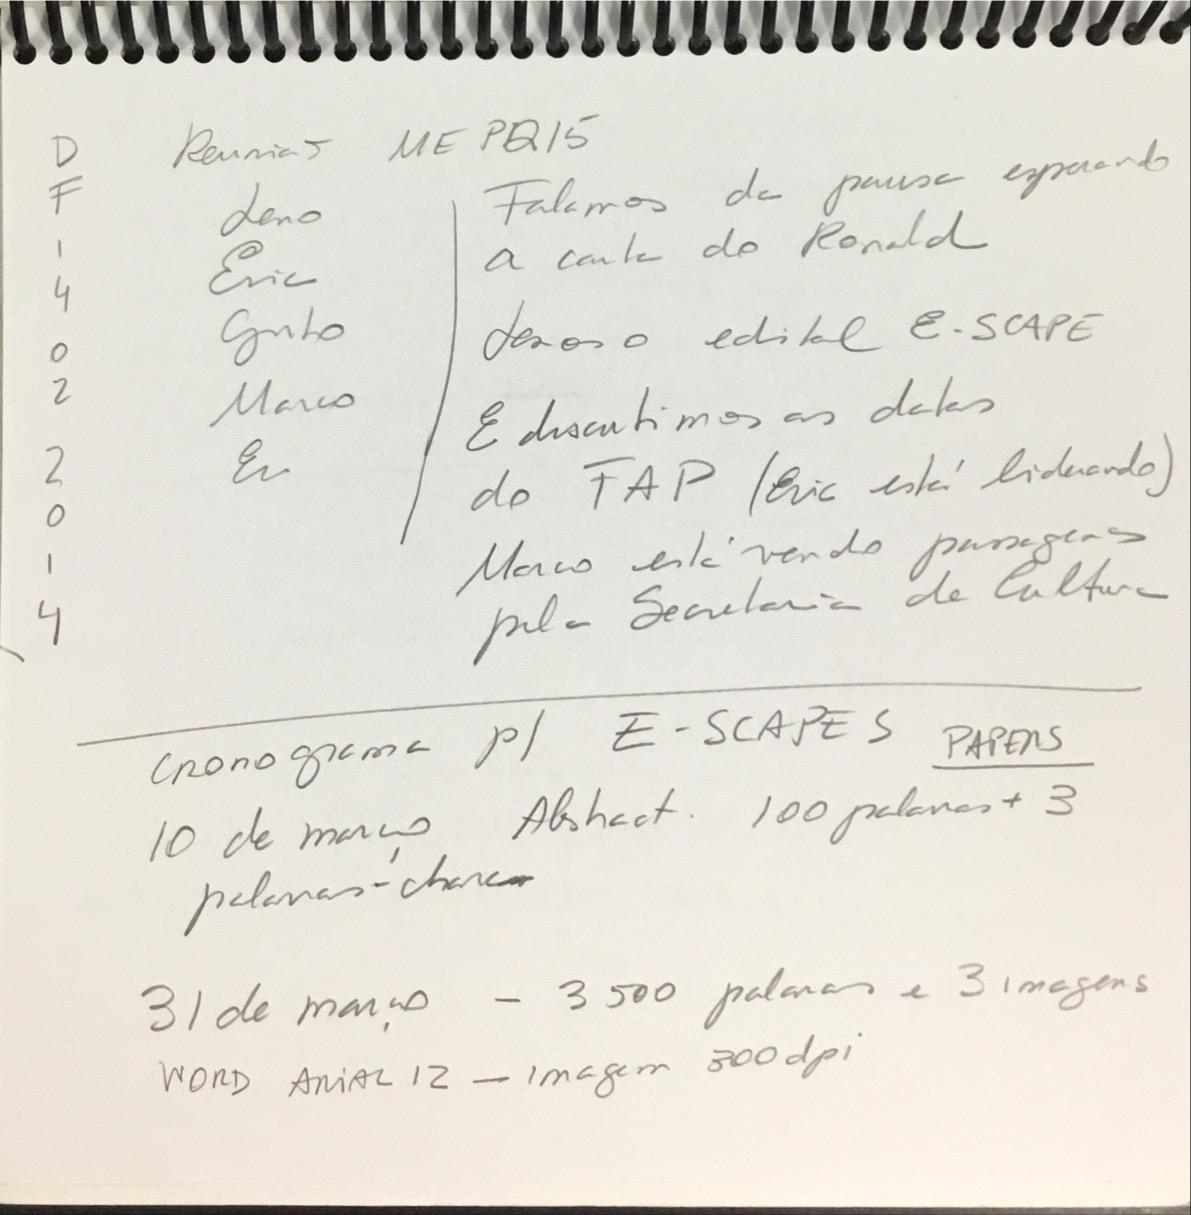 D
F
1
4
0
2
2
0
1
4
Reunião MEPQ15
Leno
Eric
Guto
Marco
Eu
Falamos da pausa esperando
a carta do Ronald
Lemos o edital E-SCAPE
E discutimos as datas
do FAP (Eric está liderando)
Marco está vendo passagens
pela Secretaria de Cultura
CRONOgrama p/ E-SCAPES PAPERS
10 de março Abstract. 100 palavras + 3
palavras-chave
31 de março - 3500 palavras e 3 imagens
WORD ARIAL 12 - imagem 300 dpi